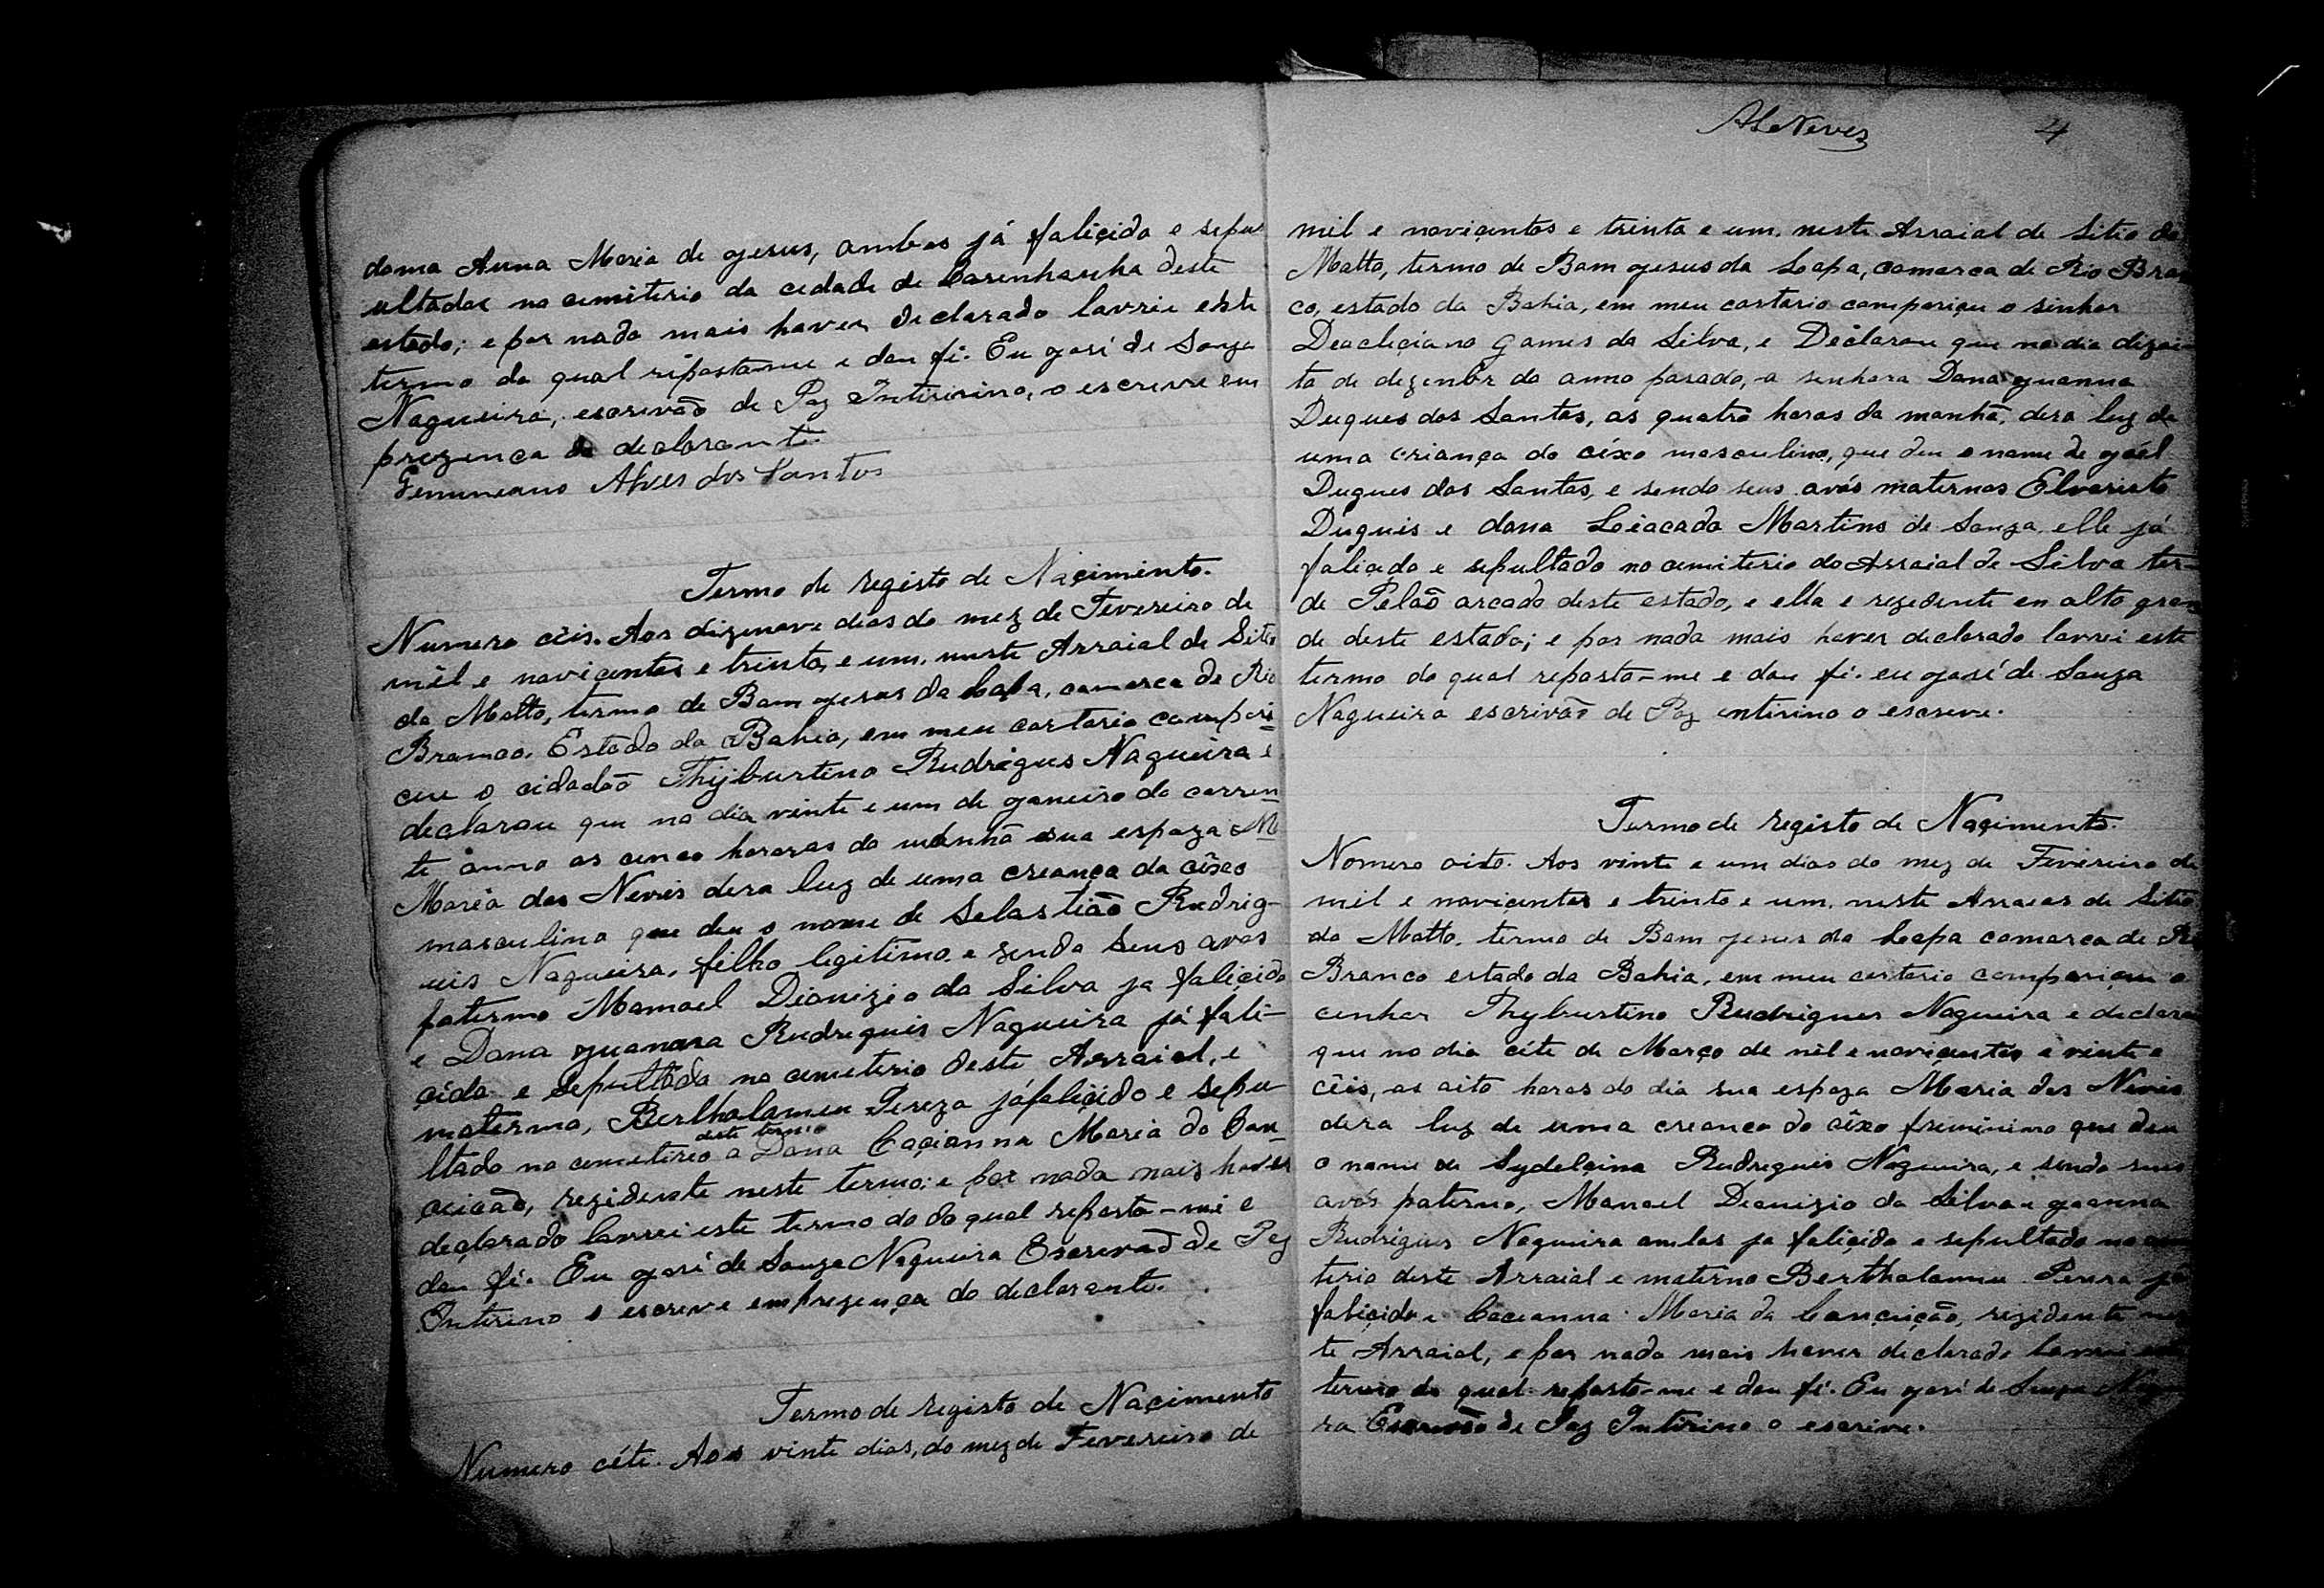 dona Anna Maria de Jesus, ambos já faliçido e sepu
ultados no cimiterio da cidade de Carenhanha deste
estado; e por nada mais haver declarado lavrei este
termo do qual riposto-me e dou fé. Eu José de Souza
Nogueira, escrivão de Paz Intirino, o escreve em
prezenca do declarante.
Geminiano Alves dos Santos
Termo de registo de Naçimento.
Numero céis. Aos dizenove dias do mez de Fevereiro de
mil e noviçentos e trinta e um, neste Arraial de Sitio
do Matto, termo de Bom Jesus da Lapa, comarca de Rio
Branco, Estado da Bahia, em meu cartorio compari
ceu o cidadão Thyburtino Rudrigues Nogueira e
declarou que no dia vinte e um de Janeiro do corren
te anno as cinco horas da manhã sua espoza M
Maria das Neves dera luz de uma creança do cêxo
masculino que deu o nome de Sebastião Rudrig-
uis Nogueira, filho legitimo, e sendo seus avos
paterno Manoel Dionizio da Silva ja faliçido
e Dona Juanna Rudriguis Nogueira já fali-
çida e sepultada no cemeterio deste Arraial, e
materno, Berthalameu Pereza já faliçido e sepu-
ltado no cemeterio deste termo a Dona Caçianna Maria da Con-
ceicão, rezidente neste termo; e por nada mais haver
declarado lavrei este termo do do qual reposto-me e
dou fé. Eu José de Souza Nogueira Escrivão de Paz
Intirino o escreve em prezença do declarante.
Termo de registo de Naçimento
Numero céte. Aos vinte dias, do mez de Fevereiro de
AleNeves 4
mil e noviçentos e trinta e um, neste Arraial de Sitio do
Matto, termo de Bom Jesus da Lapa, comarca de Rio Bran
co, estado da Bahia, em meu cartorio compariçeu o sinhor
Deocleçiano Gomes da Silva, e Declarou que no dia dizoi-
to de dezenbr do anno pasado, a senhora Dona Juanna
Duques dos Santos, as quatro horas da manhã, dera luz de
uma criança do cêxo masculino, que deu o nome de Joél
Duques dos Santos, e sendo seus avós maternos Elvaristo
Duguis e dona Leiocada Martins de Souza elle já
faliçido e sepultado no cemiterio do Arraial de Silva ter-
de Pelão arcado deste estado, e ella e rezedente en alto gran
de deste estado; e por nada mais haver declarado lavrei este
termo do qual reposto-me e dou fé. eu José de Souza
Nogueira escrivão de Paz entirino o escreve.
Termo de registo de Naçimento.
Nomero oito. Aos vinte e um dias do mez de Fevereiro de
mil e noviçentos e trinta e um, neste Arraial de Sitio
do Matto, termo de Bom Jesus da Lapa comarca de Ri
Branco estado da Bahia, em meu cartorio compariçeu o
cenhor Thyburtino Rudrigues Nogueira e declarou
que no dia céte de Março de mil e noviçentos e vinte e
céis, as oito horas do dia sua espoza Maria das Neves
dera luz de uma creanca do cêxo feminimo que deu
o nome de Sydelçina Rudriguis Nogueira, e sendo seus
avós paterno, Manoel Dionizio da Silva e Joanna
Rudrigues Nogueira ambos ja faliçido e sepultado no cem
terio deste Arraial e materno Berthalameu Pereza já
faliçido e Caceanna Maria da Conçeição, rezidente nes
te Arraial, e por nada mais haver declarado lavrei este
termo do qual reposto-me e dou fé. Eu José de Souza Noguei
ra Escrivão de Paz Intirino o escrive.